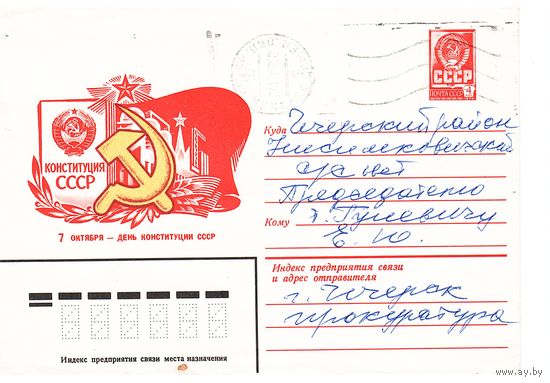 СССР
ПОЧТА СССР
КОНСТИТУЦИЯ
СССР
7 ОКТЯБРЯ — ДЕНЬ КОНСТИТУЦИИ СССР
Куда Чечерский район
с/совет
Председателю
Кому т. Гуневичу
Е. Ю.
Индекс предприятия связи
и адрес отправителя
г. Чечерск
прокуратура
Индекс предприятия связи места назначения
www.ay.by